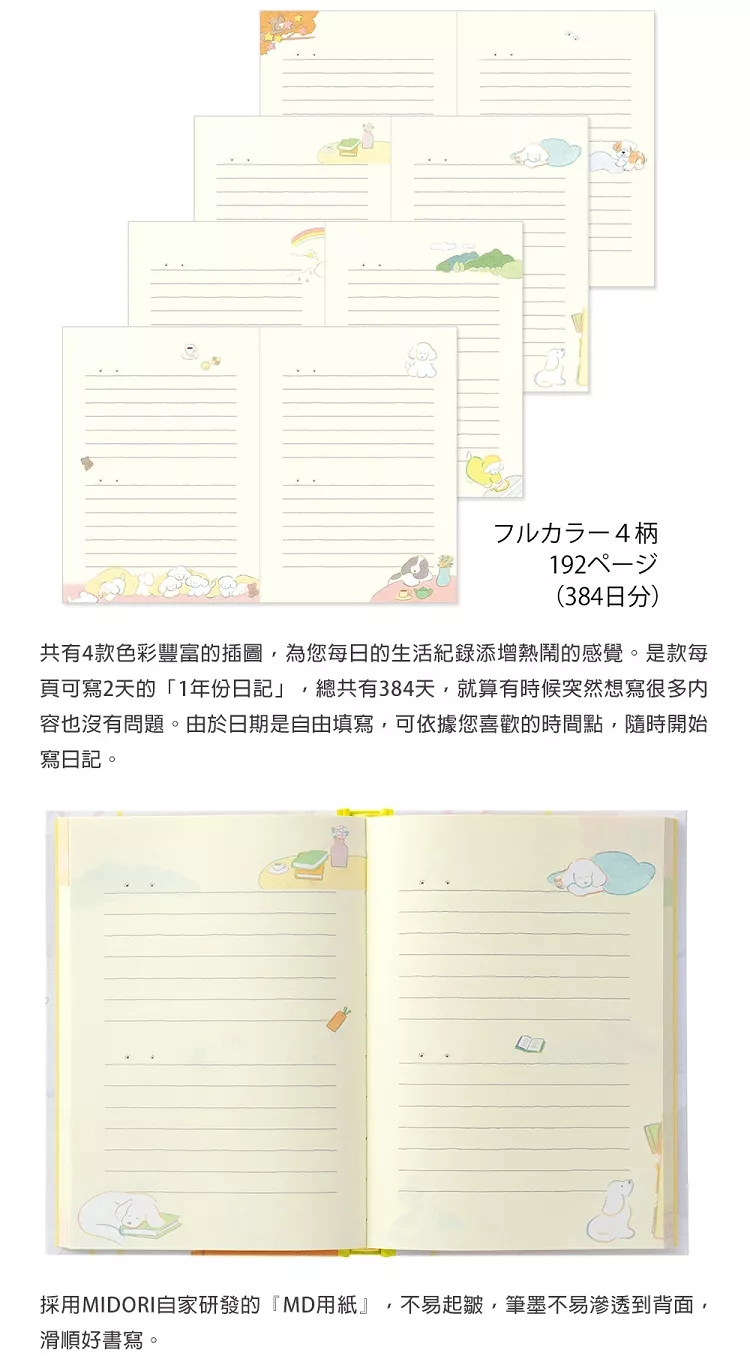 フルカラー４柄
192ページ
（384日分）
共有4款色彩豐富的插圖，為您每日的生活紀錄添增熱鬧的感覺。是款每
頁可寫2天的「1年份日記」，總共有384天，就算有時候突然想寫很多內
容也沒有問題。由於日期是自由填寫，可依據您喜歡的時間點，隨時開始
寫日記。
採用MIDORI自家研發的『MD用紙』，不易起皺，筆墨不易滲透到背面，
滑順好書寫。